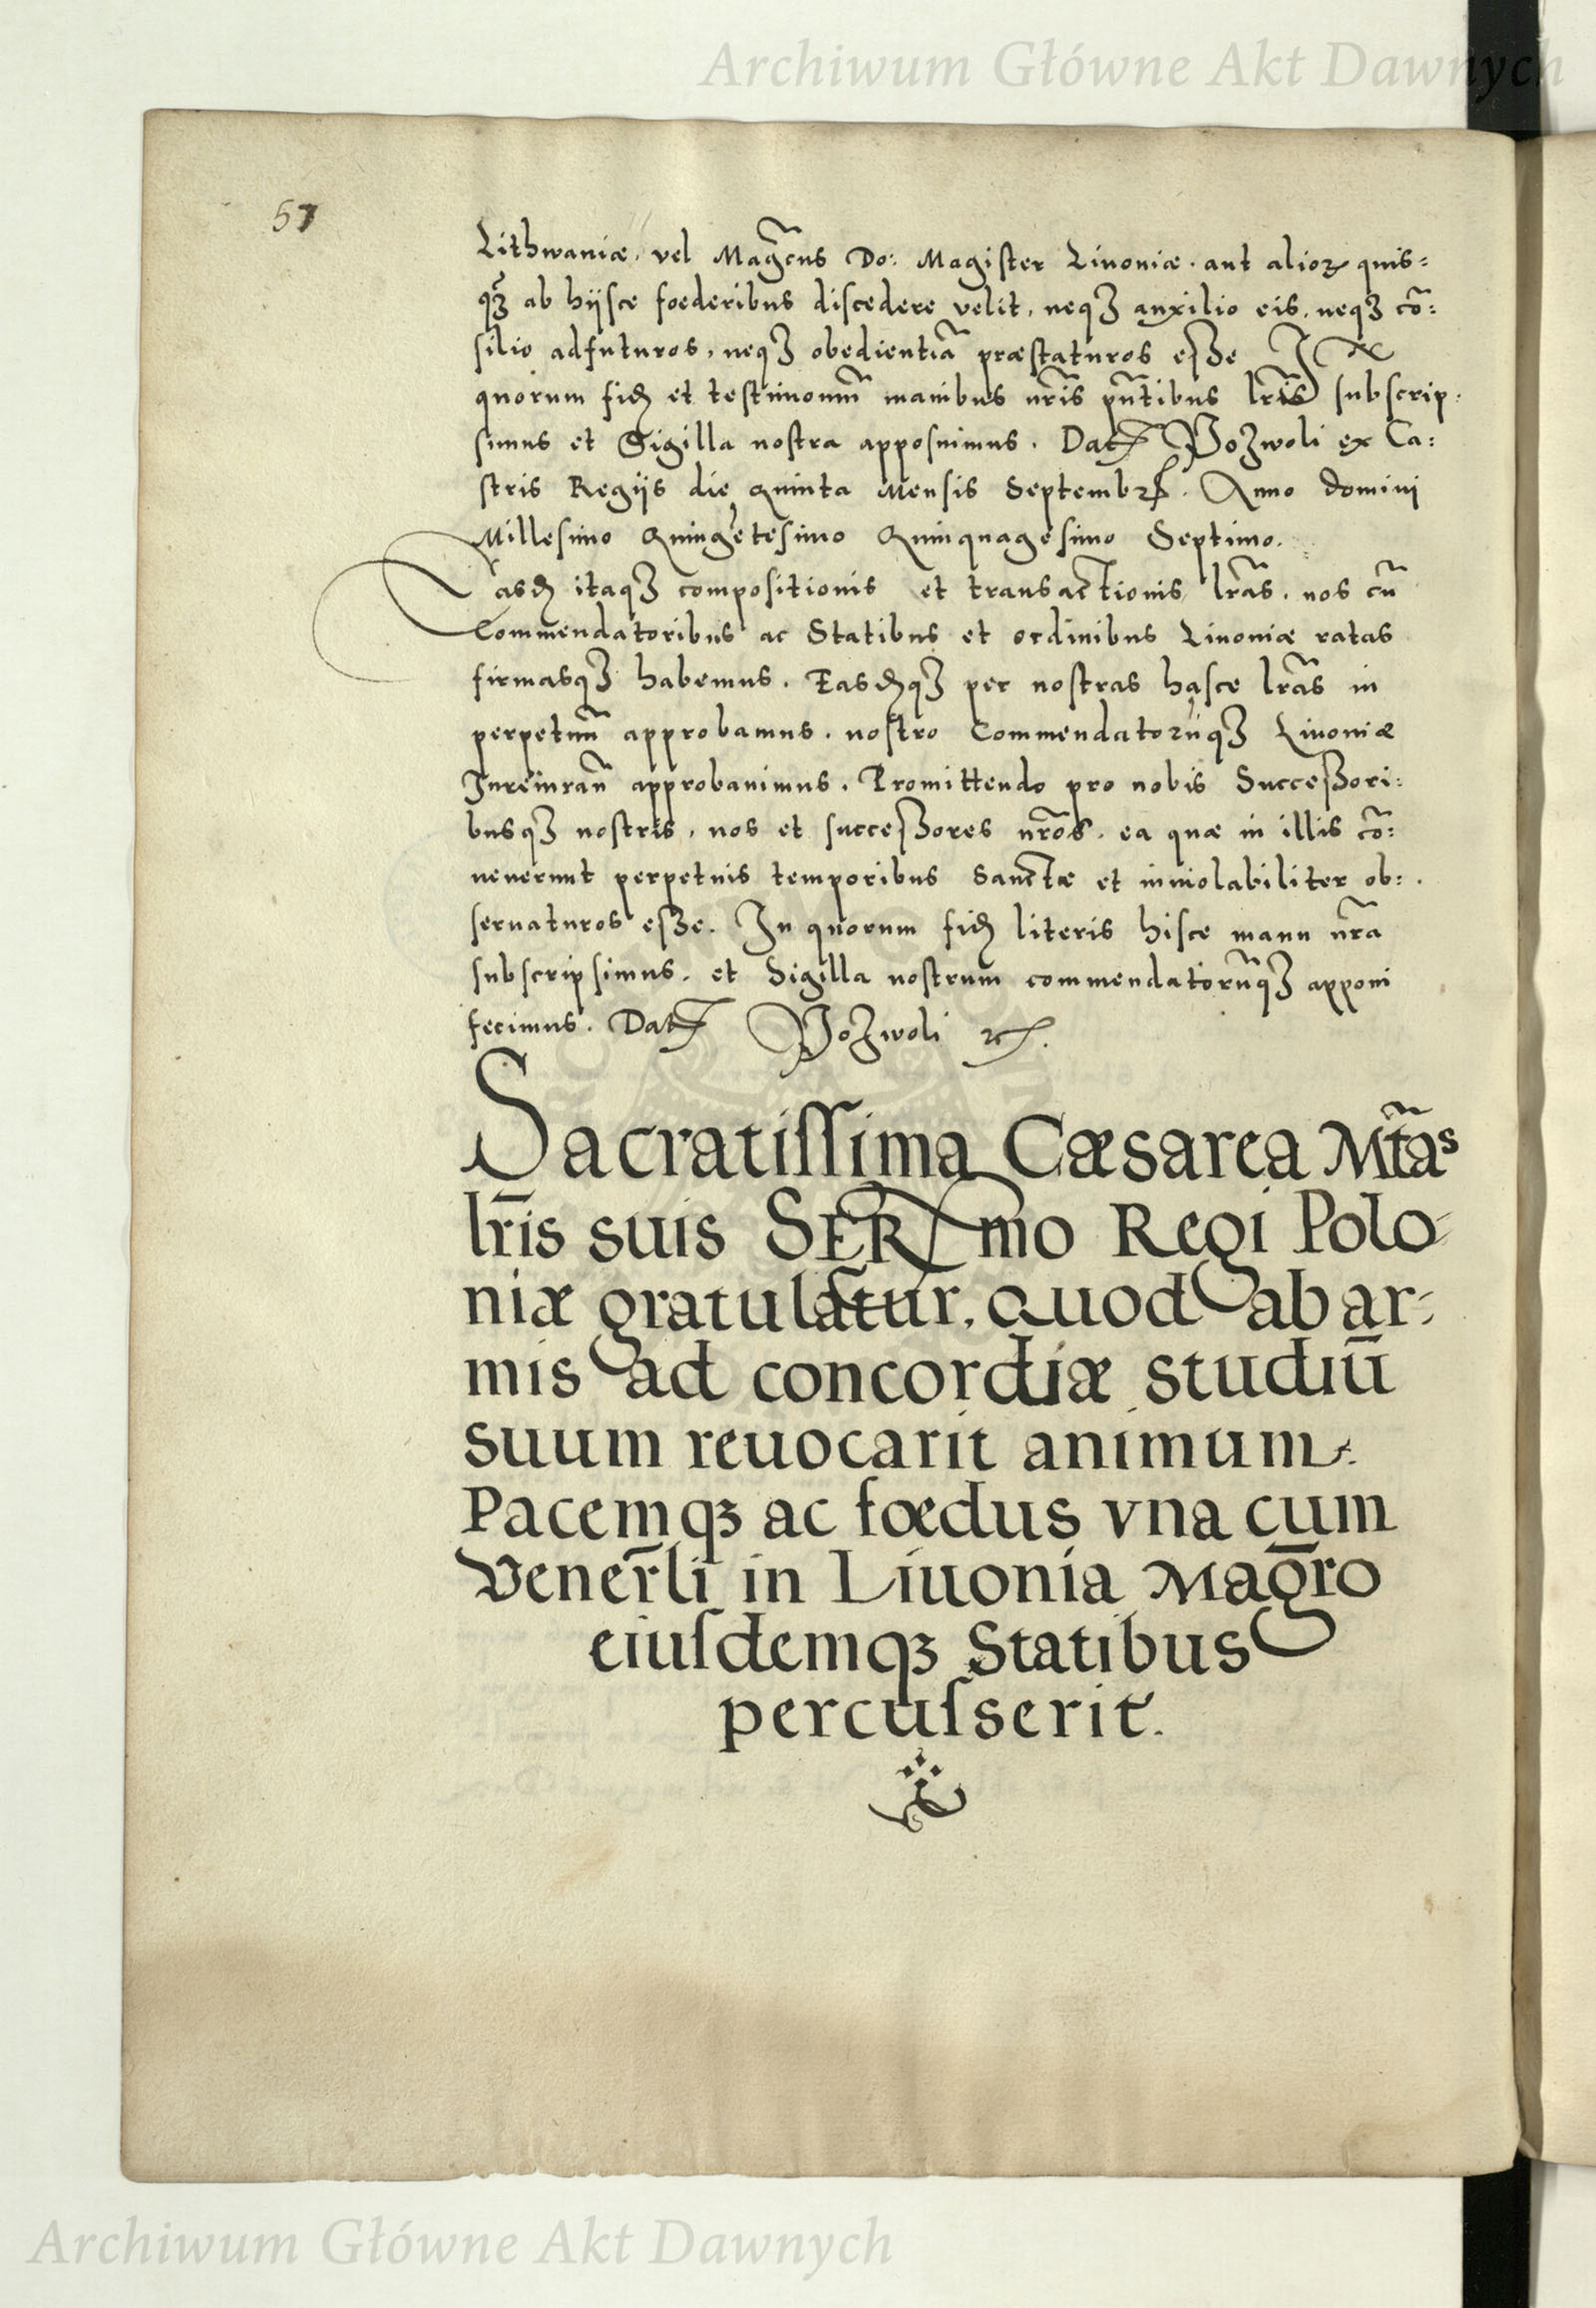 Archiwum Główne Akt Dawnych
57
Lithwaniæ, vel Magcus Do: Magister Liuoniæ. aut alioꝝ quis=
qꝫ ab hijsce foederibus discedere velit, neqꝫ auxilio eis, neqꝫ cō=
silio adfuturos, neqꝫ obedientiā præstaturos eſꝫe In
quorum fid̨ et testimoniū manibus nr̄is pn̄tibus lr̄is subscrip=
simus et Sigilla nostra apposuimus. Dat Pozwoli ex Ca=
stris Regijs die Quinta Mensis Septembr. Anno domini
Millesimo Quingētesimo Quinquagesimo Septimo.
Easd̨ itaqꝫ compositionis et transactionis lr̄as, nos cū
Commendatoribus ac Statibus et ordinibus Liuoniæ ratas
firmasqꝫ habemus. Easd̨qꝫ per nostras hasce lr̄as in
perpetuū approbamus. nostro Commendatorūqꝫ Liuoniæ
Iureiurān approbauimus. Promittendo pro nobis Succeſꝫori=
busqꝫ nostris, nos et succeſꝫores nr̄os, ea quæ in illis cō=
uenerunt perpetuis temporibus Sanctæ et inuiolabiliter ob=
seruaturos eſꝫe. In quorum fid̨ literis hisce manu nr̄a
subscripsimus, et Sigilla nostrum commendatorūqꝫ apponi
fecimus. Dat Pozwoli ꝛc.
Sacratiſſima Cæsarea Mtās
lr̄is suis SERmo Regi Polo=
niæ gratulātur, quod ab ar=
mis ad concordiæ studiū
suum reuocarit animum.
Pacemqꝫ ac fœdus vna cum
Vener̄li in Liuonia Magr̄o
eiuſdemqꝫ Statibus
percuſserit.
Archiwum Główne Akt Dawnych